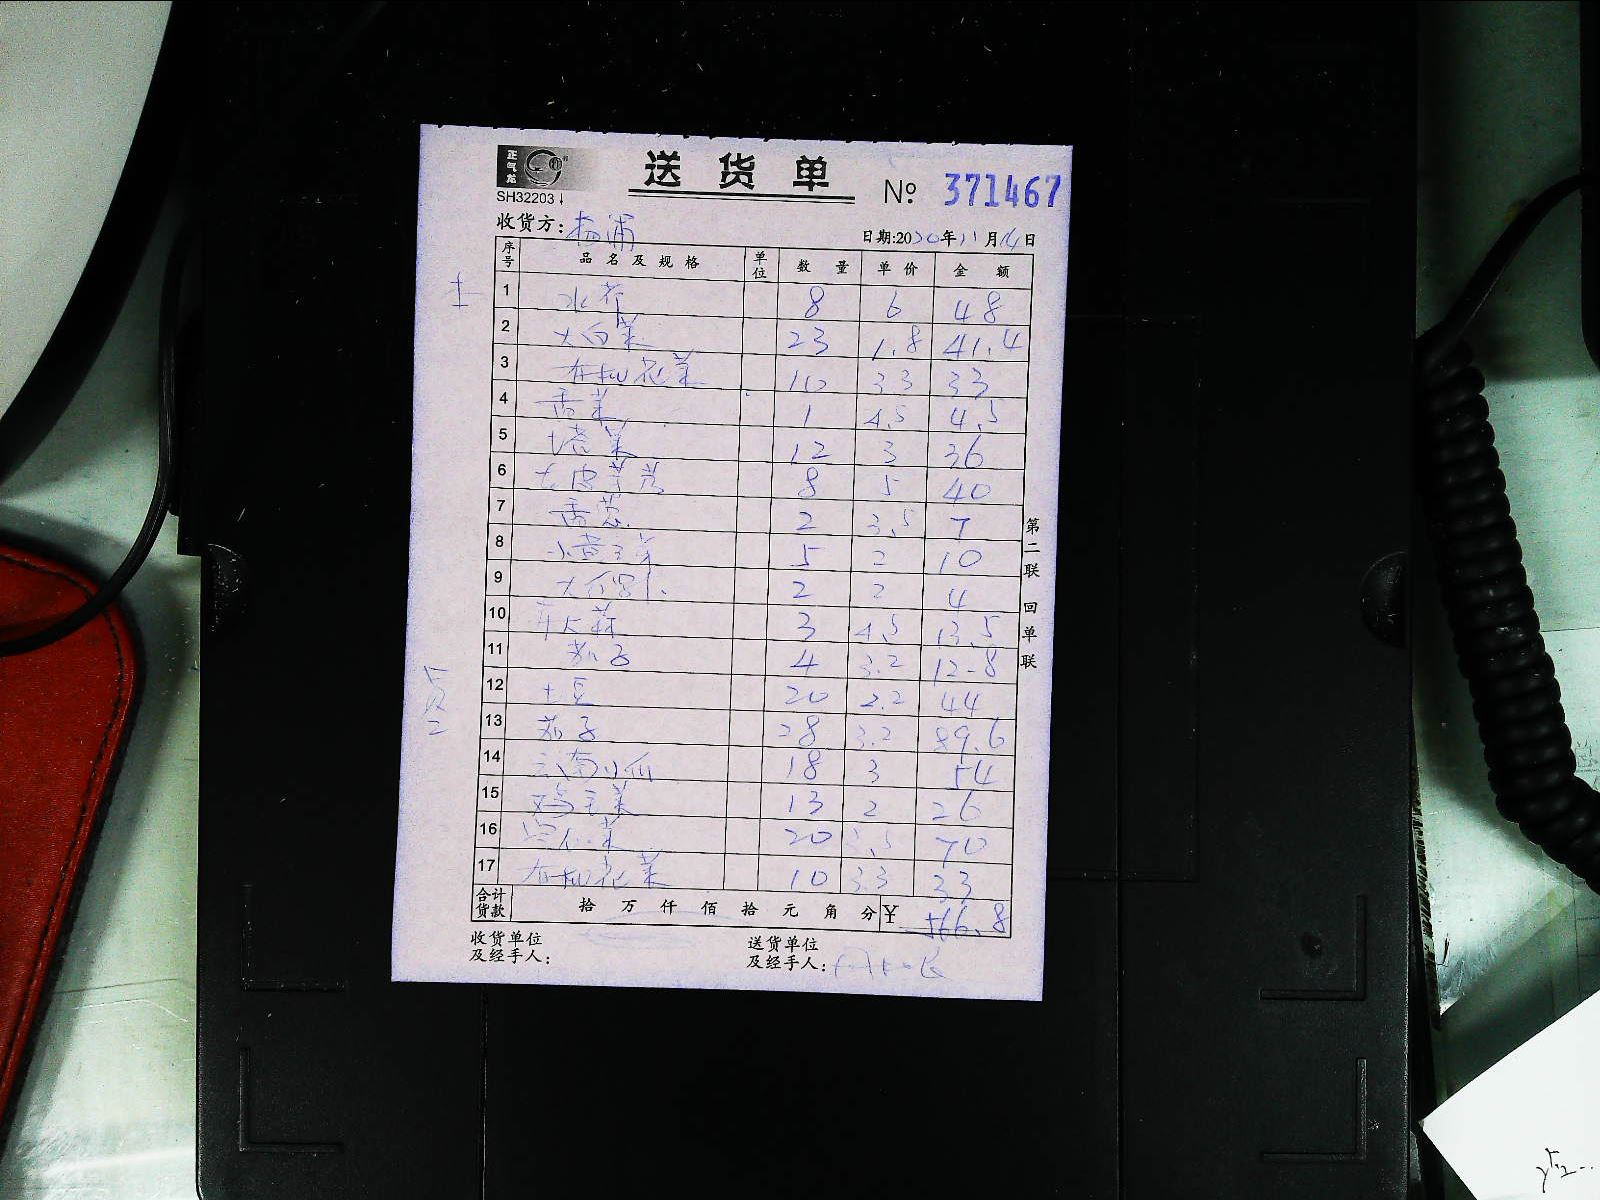 正气龙
送货单
№ 371467
SH32203
收货方: 杨浦
日期:2020年11月14日
序号 品名及规格 单位 数量 单价 金额
1 水芹 8 6 48
2 大白菜 23 1.8 41.4
3 有机花菜 10 3.3 33
4 香菜 1 4.5 4.5
5 塔菜 12 3 36
6 去皮芋艿 8 5 40
7 香葱 2 3.5 7
8 小黄豆芽 5 2 10
9 2 2 4
10 3 4.5 13.5
11 茄子 4 3.2 12.8
12 土豆 20 2.2 44
13 茄子 28 3.2 89.6
14 云南小瓜 18 3 54
15 鸡毛菜 13 2 26
16 空心菜 20 3.5 70
17 有机花菜 10 3.3 33
合计货款 拾万仟佰拾元角分 ¥ 566.8
收货单位及经手人:
送货单位及经手人:
第二联 回单联